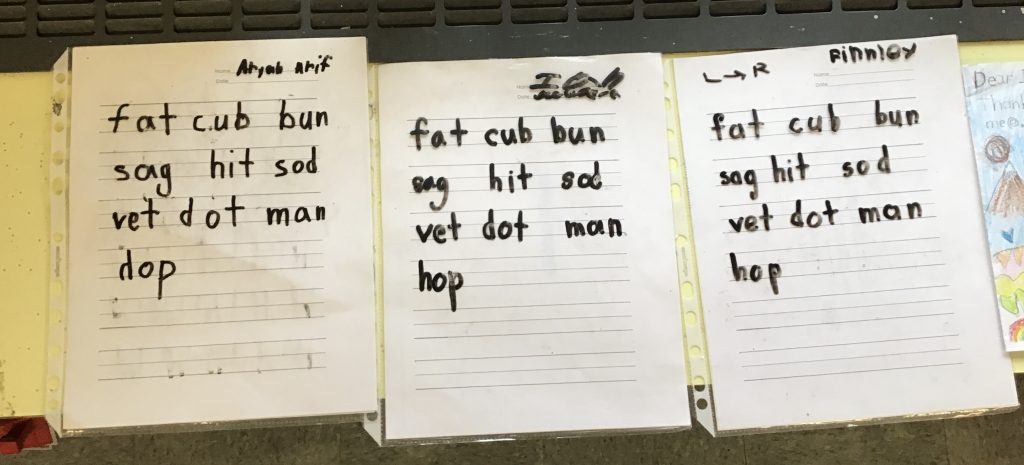 Name
Aryab Arif
Date
fat cub bun
sag hit sod
vet dot man
dop
fat cub bun
sag hit sod
vet dot man
hop
L → R
Finnley
Name
Date
fat cub bun
sag hit sod
vet dot man
hop
Dear
Thank
me